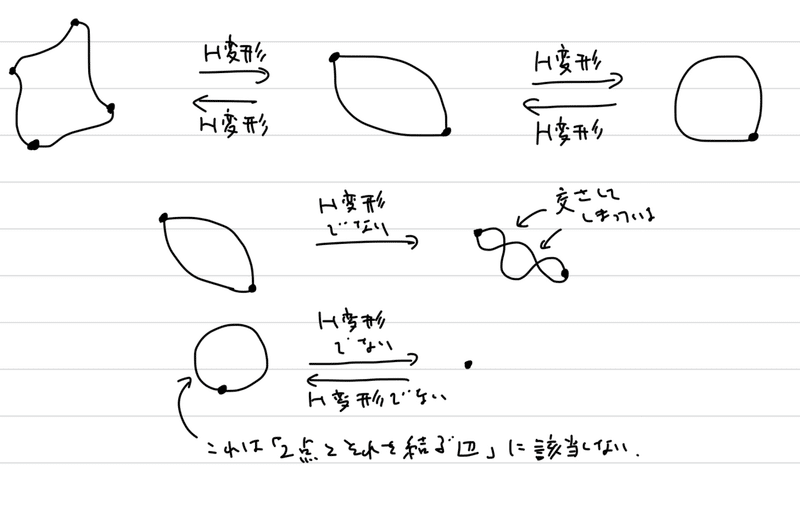 H変形
H変形
H変形
H変形
H変形
でない
交さして
しまっている
H変形
でない
H変形でない
これは「2点とそれを結ぶ辺」に該当しない.